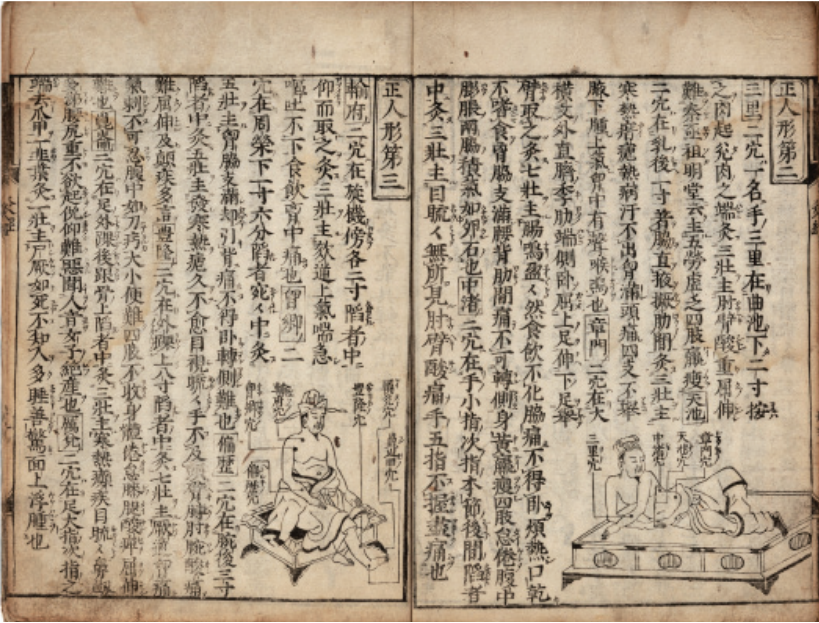 正人形第二
三里二穴一名手三里在曲池下二寸按
之肉起兊肉之端灸三壯主肘臂酸重屈伸
難秦丞祖明堂云主五勞虚乏四肢羸瘦天池
二穴在乳後一寸著脇直腋撅肋間灸三壯主
寒熱痎瘧熱病汗不出胷滿頭痛四支不舉
腋下腫上氣胷中有聲喉鳴也章門二穴在大
横文外直臍季肋端側卧屈上足伸下足舉
臂取之灸七壯主腸鳴盈盈然食飲不化脇痛不得卧煩熱口乾
不嗜食胷脇支滿腰背肋間痛不可轉側身黃羸瘦四肢怠倦腹中
膨脹兩脇積氣如卵石也中渚二穴在手小指次指本節後間陷者
中灸三壯主目䀮䀮無所見肘臂酸痛手五指不握盡痛也
章門穴
天池穴
中渚穴
三里穴
正人形第三
輸府二穴在旋機傍各二寸陷者中
仰而取之灸三壯主欬逆上氣喘急
嘔吐不下食飲胷中痛也胷鄉二
穴在周榮下一寸六分陷者宛宛中灸
五壯主胷脇支滿却引背痛不得卧轉側難也偏歷二穴在腕後三寸
陷者中灸五壯主發寒熱瘧久不愈目視䀮䀮手不及頭臂膊肘腕酸痛
難屈伸及顛疾多言豊隆二穴在外踝上八寸陷者中灸七壯主厥逆胷痛
氣刺不可忍腹中如刀㓨大小便難四肢不收身體怠惰膝腿酸痺屈伸
難也崑崙二穴在足外踝後跟骨上陷者中灸三壯主寒熱癲疾目䀮䀮
腰尻重不欲起俛仰難惡聞人音女子絶産也厲兊二穴在足大指次指之
端去爪甲一韮葉灸一壯主尸厥如死不知人多睡善驚面上浮腫也
輸府穴
胷鄉穴
偏歷穴
豊隆穴
厲兊穴
崑崙穴